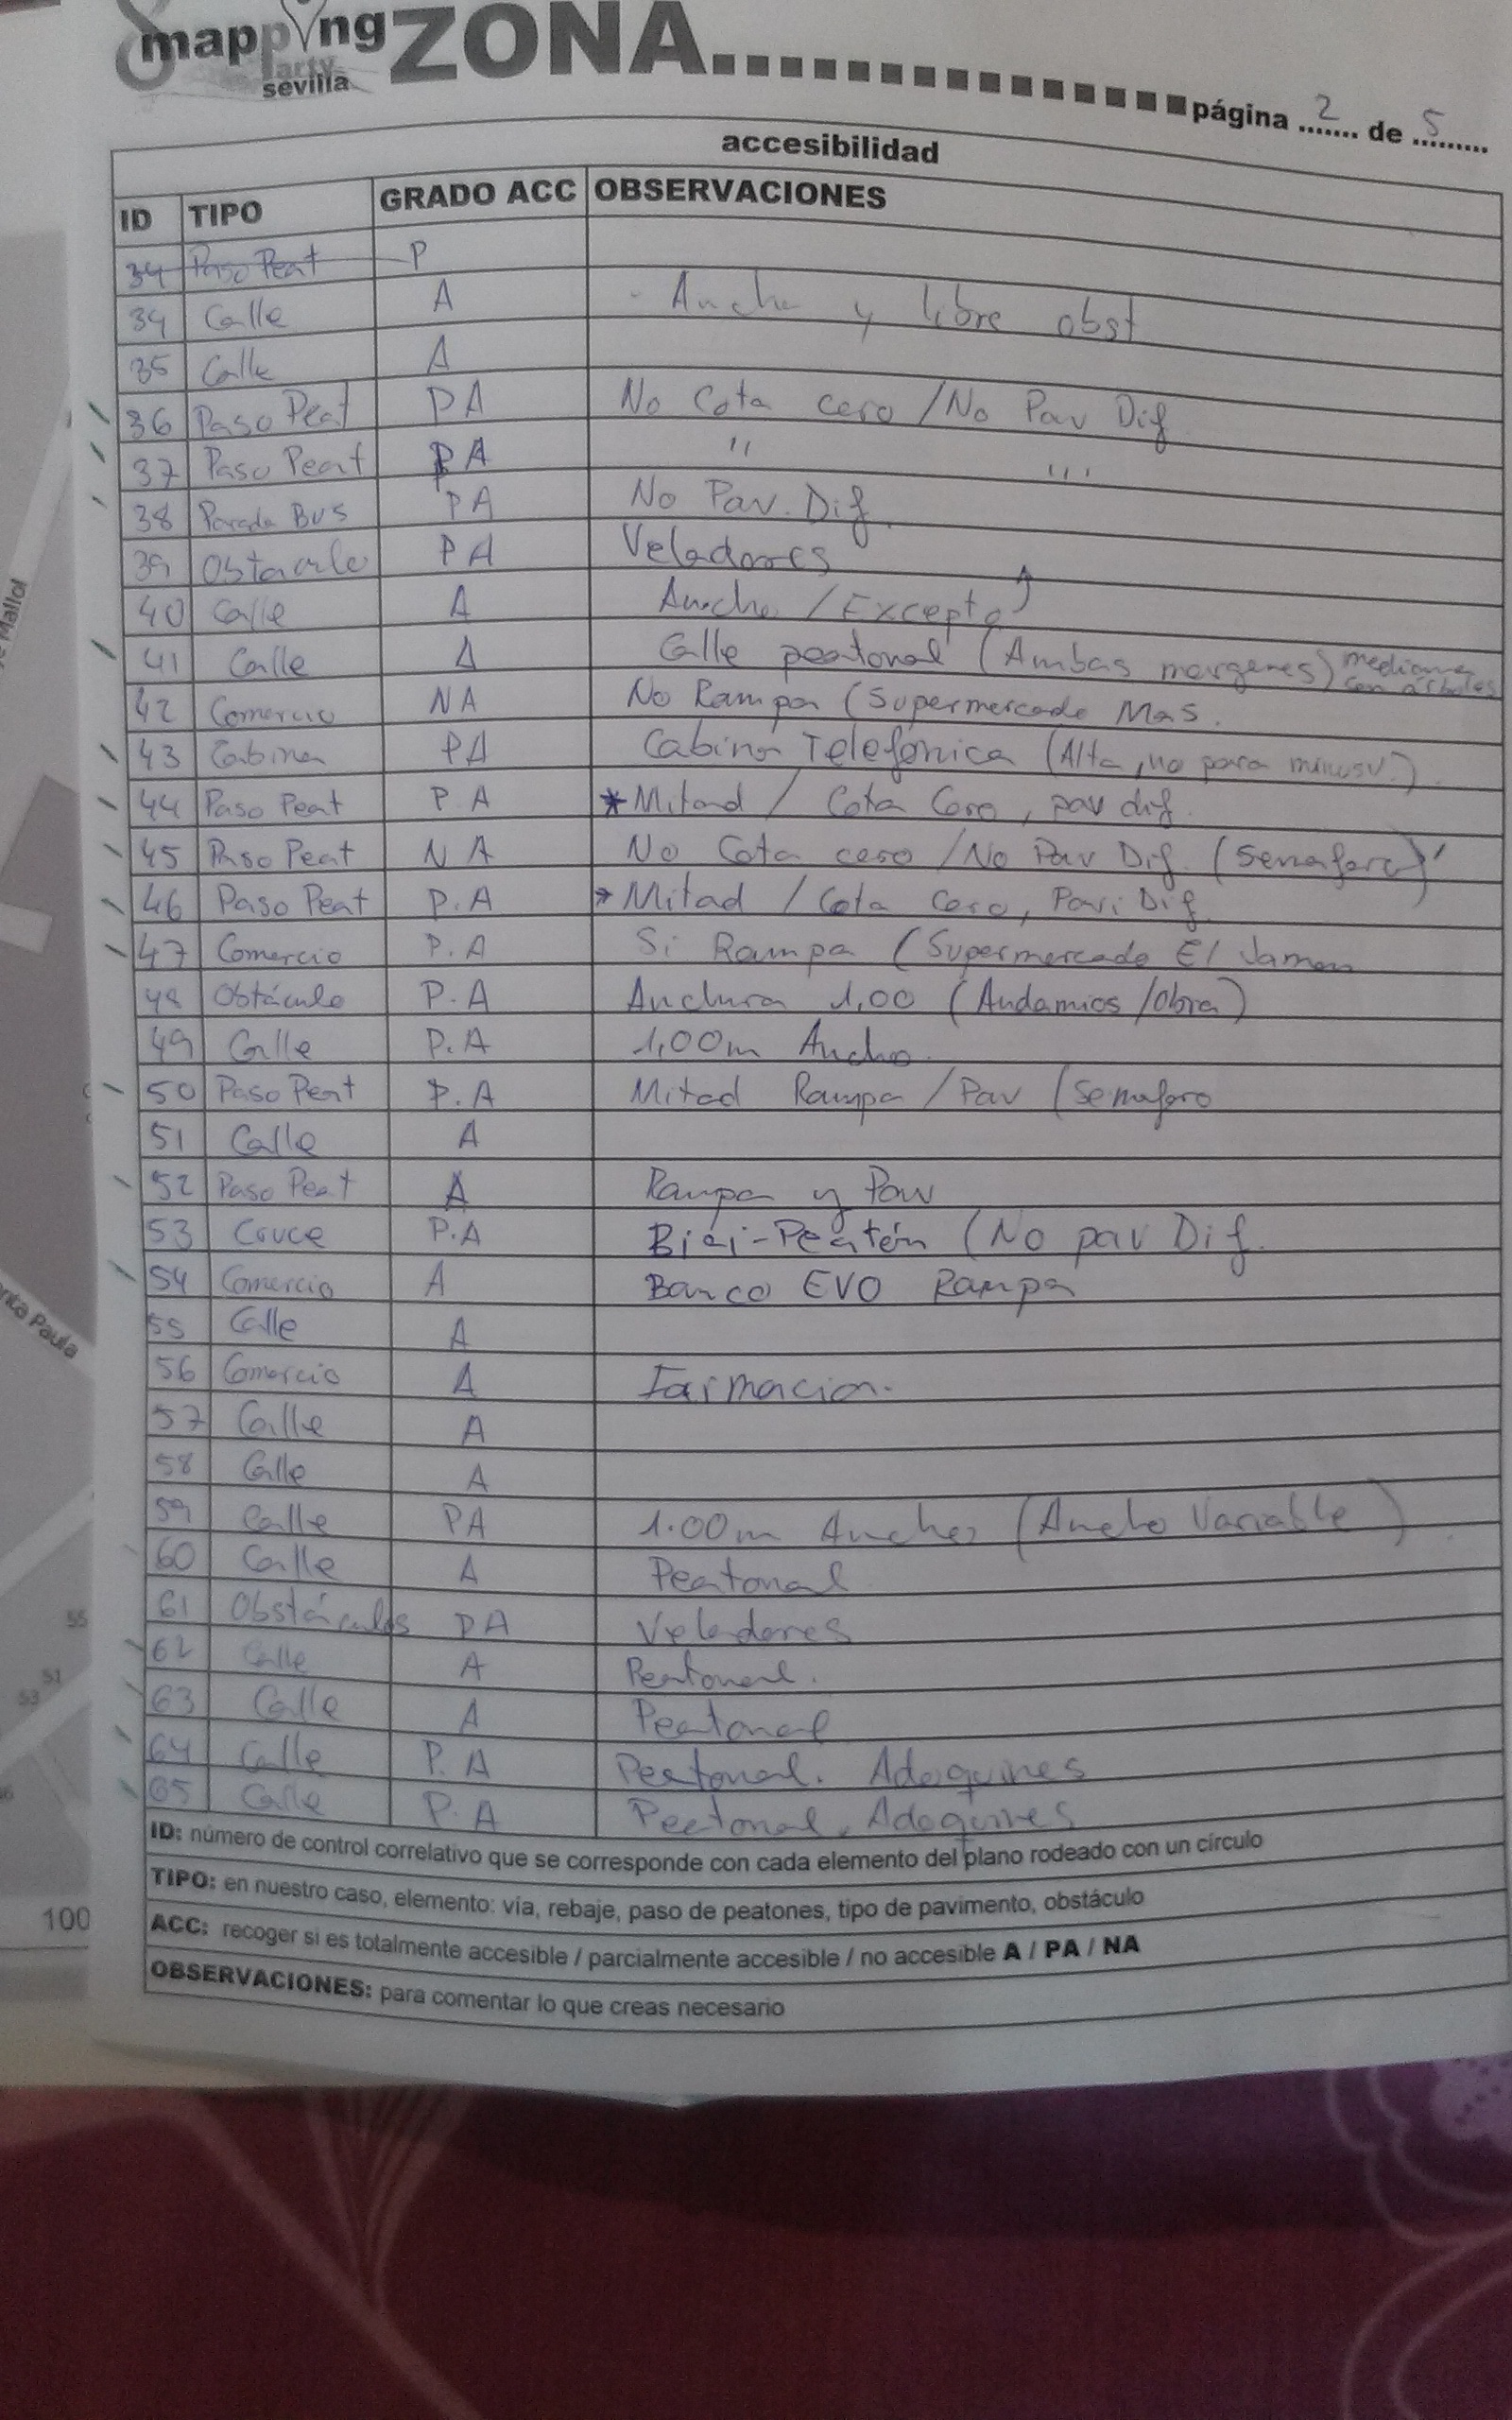 mapping ZONA
party
sevilla
página 2 de 5
accesibilidad
ID TIPO GRADO ACC OBSERVACIONES
34 Paso Peat P
34 Calle A - Ancha y libre obst
35 Calle A
36 Paso Peat PA No Cota cero / No Pav Dif
37 Paso Peat PA " "'
38 Parada Bus PA No Pav. Dif.
39 Obstaculo PA Veladores
40 Calle A Ancha / Excepto
41 Calle A Calle peatonal (Ambas margenes) mediana con árboles
42 Comercio NA No Rampa (Supermercado Mas.
43 Cabina PA Cabina Telefónica (Alta, no para minusv.)
44 Paso Peat P A *Mitad / Cota Cero, pav dif.
45 Paso Peat N A No Cota cero / No Pav Dif. (Semaforo)
46 Paso Peat P.A *Mitad / Cota Cero, Pav. Dif
47 Comercio P.A Si Rampa (Supermercado El Jamon
48 Obtáculo P.A Anchura 1,00 (Andamios /Obra)
49 Calle P.A 1,00m Ancho.
50 Paso Peat P.A Mitad Rampa / Pav (Semaforo
51 Calle A
52 Paso Peat A Rampa y Pav
53 Cruce P.A Bici-Peatón (No pav Dif.
54 Comercio A Banco EVO Rampa
55 Calle A
56 Comercio A Farmacia.
57 Calle A
58 Calle A
59 Calle PA 1.00m Ancho (Ancho Variable)
60 Calle A Peatonal
61 Obstáculos PA Veladores
62 Calle A Peatonal.
63 Calle A Peatonal
64 Calle P.A Peatonal. Adoquines
65 Calle P.A Peatonal. Adoquines
ID: número de control correlativo que se corresponde con cada elemento del plano rodeado con un círculo
TIPO: en nuestro caso, elemento: vía, rebaje, paso de peatones, tipo de pavimento, obstáculo
ACC: recoger si es totalmente accesible / parcialmente accesible / no accesible A / PA / NA
OBSERVACIONES: para comentar lo que creas necesario
Mallol
Paula
55
51
53
100